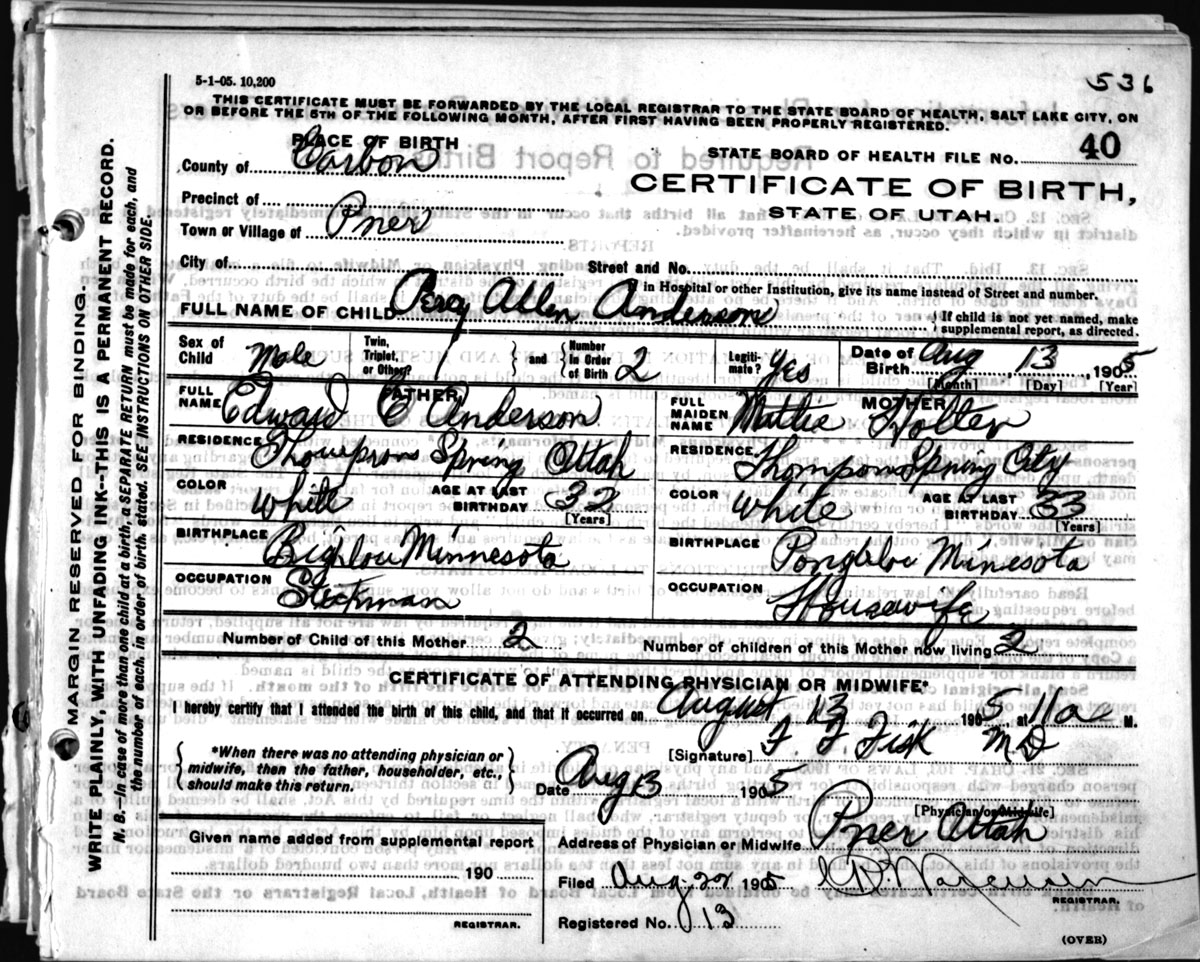 5-1-05. 10,200
536
THIS CERTIFICATE MUST BE FORWARDED BY THE LOCAL REGISTRAR TO THE STATE BOARD OF HEALTH, SALT LAKE CITY, ON
OR BEFORE THE 5TH OF THE FOLLOWING MONTH, AFTER FIRST HAVING BEEN PROPERLY REGISTERED.
PLACE OF BIRTH
County of Carbon
STATE BOARD OF HEALTH FILE No. 40
CERTIFICATE OF BIRTH,
STATE OF UTAH.
Precinct of
Town or Village of
City of
Street and No.
in Hospital or other Institution, give its name instead of Street and number.
FULL NAME OF CHILD Percy Allen Anderson
If child is not yet named, make
supplemental report, as directed.
Sex of Child Male
Twin, Triplet, or Other?
and
Number in Order of Birth 2
Legiti-mate? Yes
Date of Birth Aug 13, 1905
[Month] [Day] [Year]
FATHER
FULL NAME Edward C Anderson
MOTHER
FULL MAIDEN NAME Mattie Holten
RESIDENCE Spring Utah
RESIDENCE Spring City
COLOR White
AGE AT LAST BIRTHDAY 32
[Years]
COLOR White
AGE AT LAST BIRTHDAY 33
[Years]
BIRTHPLACE Minnesota
BIRTHPLACE Minesota
OCCUPATION
OCCUPATION Housewife
Number of Child of this Mother 2
Number of children of this Mother now living 2
CERTIFICATE OF ATTENDING PHYSICIAN OR MIDWIFE*
I hereby certify that I attended the birth of this child, and that it occurred on August 13 1905 at 11 a M.
*When there was no attending physician or
midwife, then the father, householder, etc.,
should make this return.
[Signature] F. F. Fisk MD
Date Aug 13 1905
[Physician or Midwife]
Given name added from supplemental report
190
REGISTRAR.
Address of Physician or Midwife Utah
Filed Aug 22 1905
REGISTRAR.
Registered No. 13
(OVER)
MARGIN RESERVED FOR BINDING.
WRITE PLAINLY, WITH UNFADING INK--THIS IS A PERMANENT RECORD.
N. B.--In case of more than one child at a birth, a SEPARATE RETURN must be made for each, and
the number of each, in order of birth, stated. SEE INSTRUCTIONS ON OTHER SIDE.